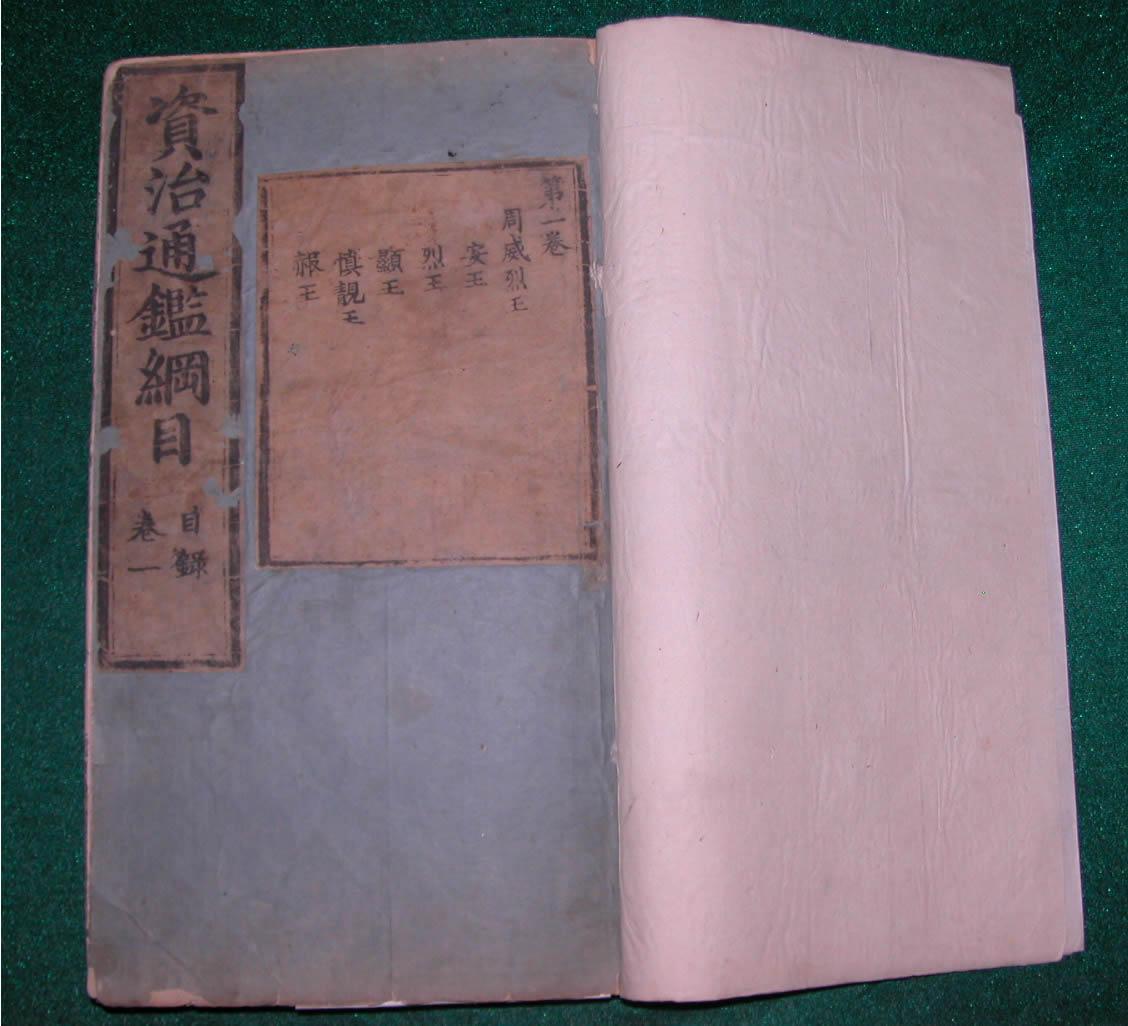 第一卷
周威烈王
安王
烈王
顯王
慎靚王
赧王
資治通鑑綱目
目錄
卷一